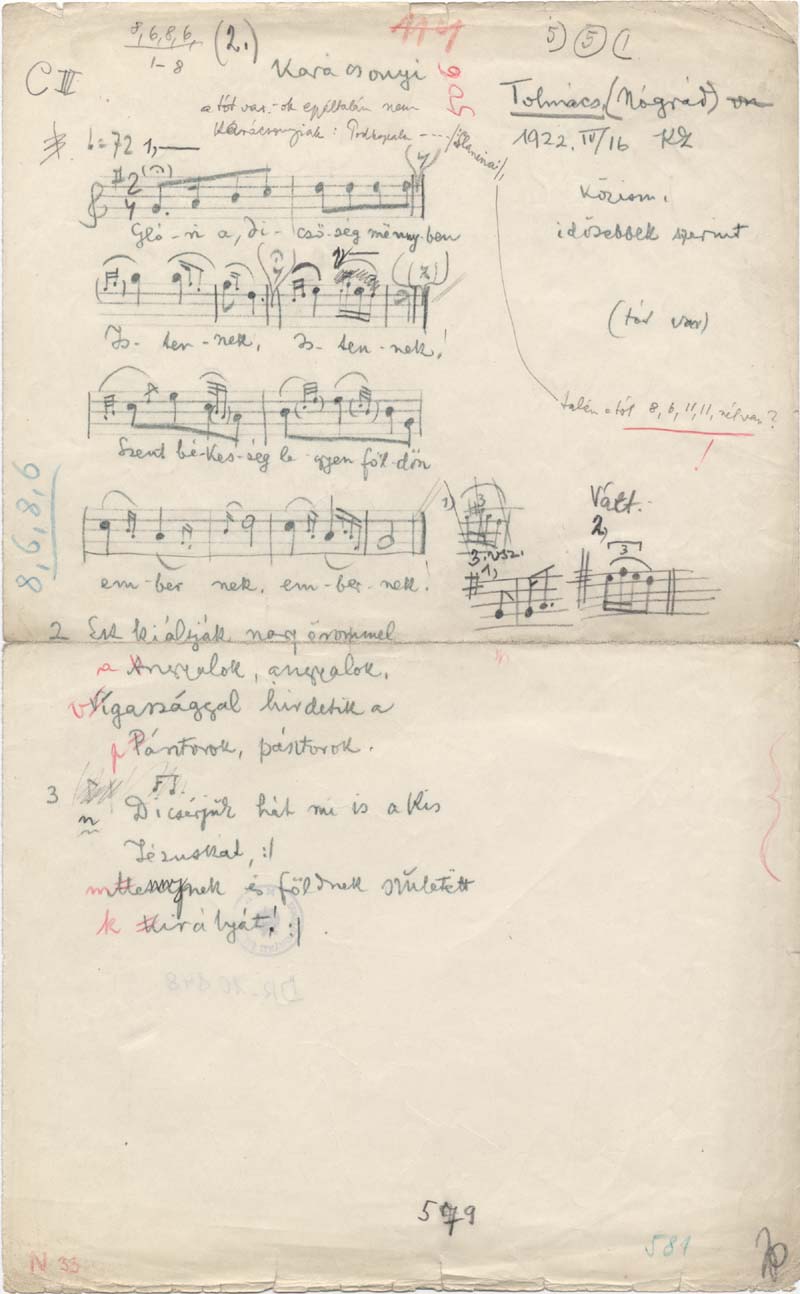 8,6,8,6,
1-8
(2.)
5) 5 1
C III
Karácsonyi
506
a tót var.-ok egyáltalán nem
Karácsonyiak:
Tolmács (Nógrád)
1922. IV/16 KZ
♩=72 1,
Közism.
idősebbek szerint
(tót var)
2
4
Gló-ri a, di- cső-ség mënny-ben
Is- ten-nek, Is-ten-nek!
talán a tót 8, 6, 11, 11,
Szent bé-kes-ség le-gyen föl-dön
8,6,8,6
em-ber nek, em-ber-nek!
1) 3
3. vsz.
1,
Vált.
2,
3
2 Ezt kiáltják nagy örömmel
a Angyalok, angyalok,
v Vígassággal hirdetik a
p Pásztorok, pásztorok.
3 Dicsérjük hát mi is a Kis
n
Jézuskát, :/
m nek és földnek született
k Királyját! :/ .
DR-10848
579
581
N 33